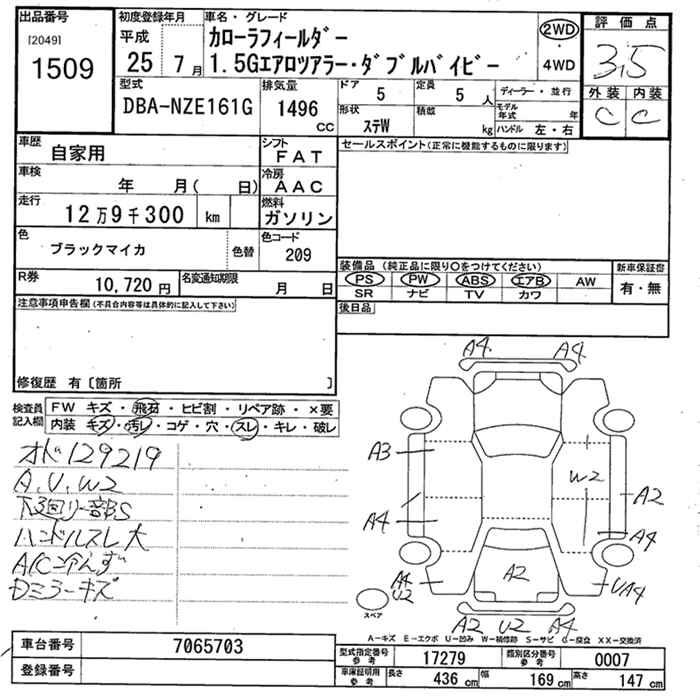 出品番号
[2049]
1509
初度登録年月
平成
25年 7月
車名・グレード
カローラフィールダー
1.5Gエアロツアラー・ダブルバイビー
2WD
・
4WD
評価点
3.5
外装 内装
C C
型式
DBA-NZE161G
排気量
1496
cc
ドア 5
定員 5 人
ディーラー・並行
形状 ステW
積載 kg
モデル年式 年
ハンドル 左・右
車歴
自家用
シフト
FAT
セールスポイント(正常に機能するものに限ります)
車検
年 月( 日)
冷房
AAC
走行
12万9千300 km
燃料
ガソリン
色
ブラックマイカ
色替
色コード
209
R券
10,720円
名変通知期限
月 日
装備品(純正品に限り○をつけてください)
PS PW ABS エアB AW
SR ナビ TV カワ
新車保証書
有・無
後日品
注意事項申告欄(不具合内容等は具体的に記入して下さい)
修復歴 有〔箇所 〕
検査員記入欄
FW キズ・飛石・ヒビ割・リペア跡・×要
内装・キズ・汚レ・コゲ・穴・スレ・キレ・破レ
オド129219
A.U.W2
下回リ一部S
ハンドルスレ大
A/C冷えず
Dミラーキズ
A4 A4
A3
W2
A2
A4
A4
A4
U2
A2
UA4
スペア
A2 U2 A4
A−キズ E−エクボ U−凹み W−補修跡 S−サビ C−腐食 XX−交換済
車台番号 7065703
登録番号
型式指定番号 参考 17279
類別区分番号 参考 0007
車庫証明用 参考
長さ 436 cm
幅 169 cm
高さ 147 cm